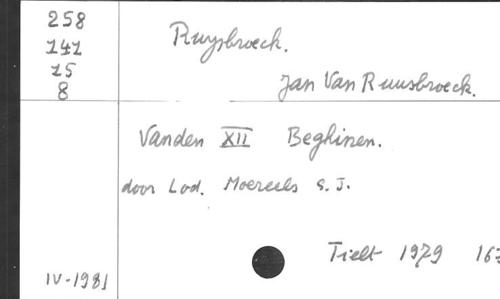 258
141
15
8
Ruysbroeck.
Jan Van Ruusbroeck.
Vanden XII Beghinen.
door Lod. Moereels S.J.
Tielt 1979 167
IV-1981